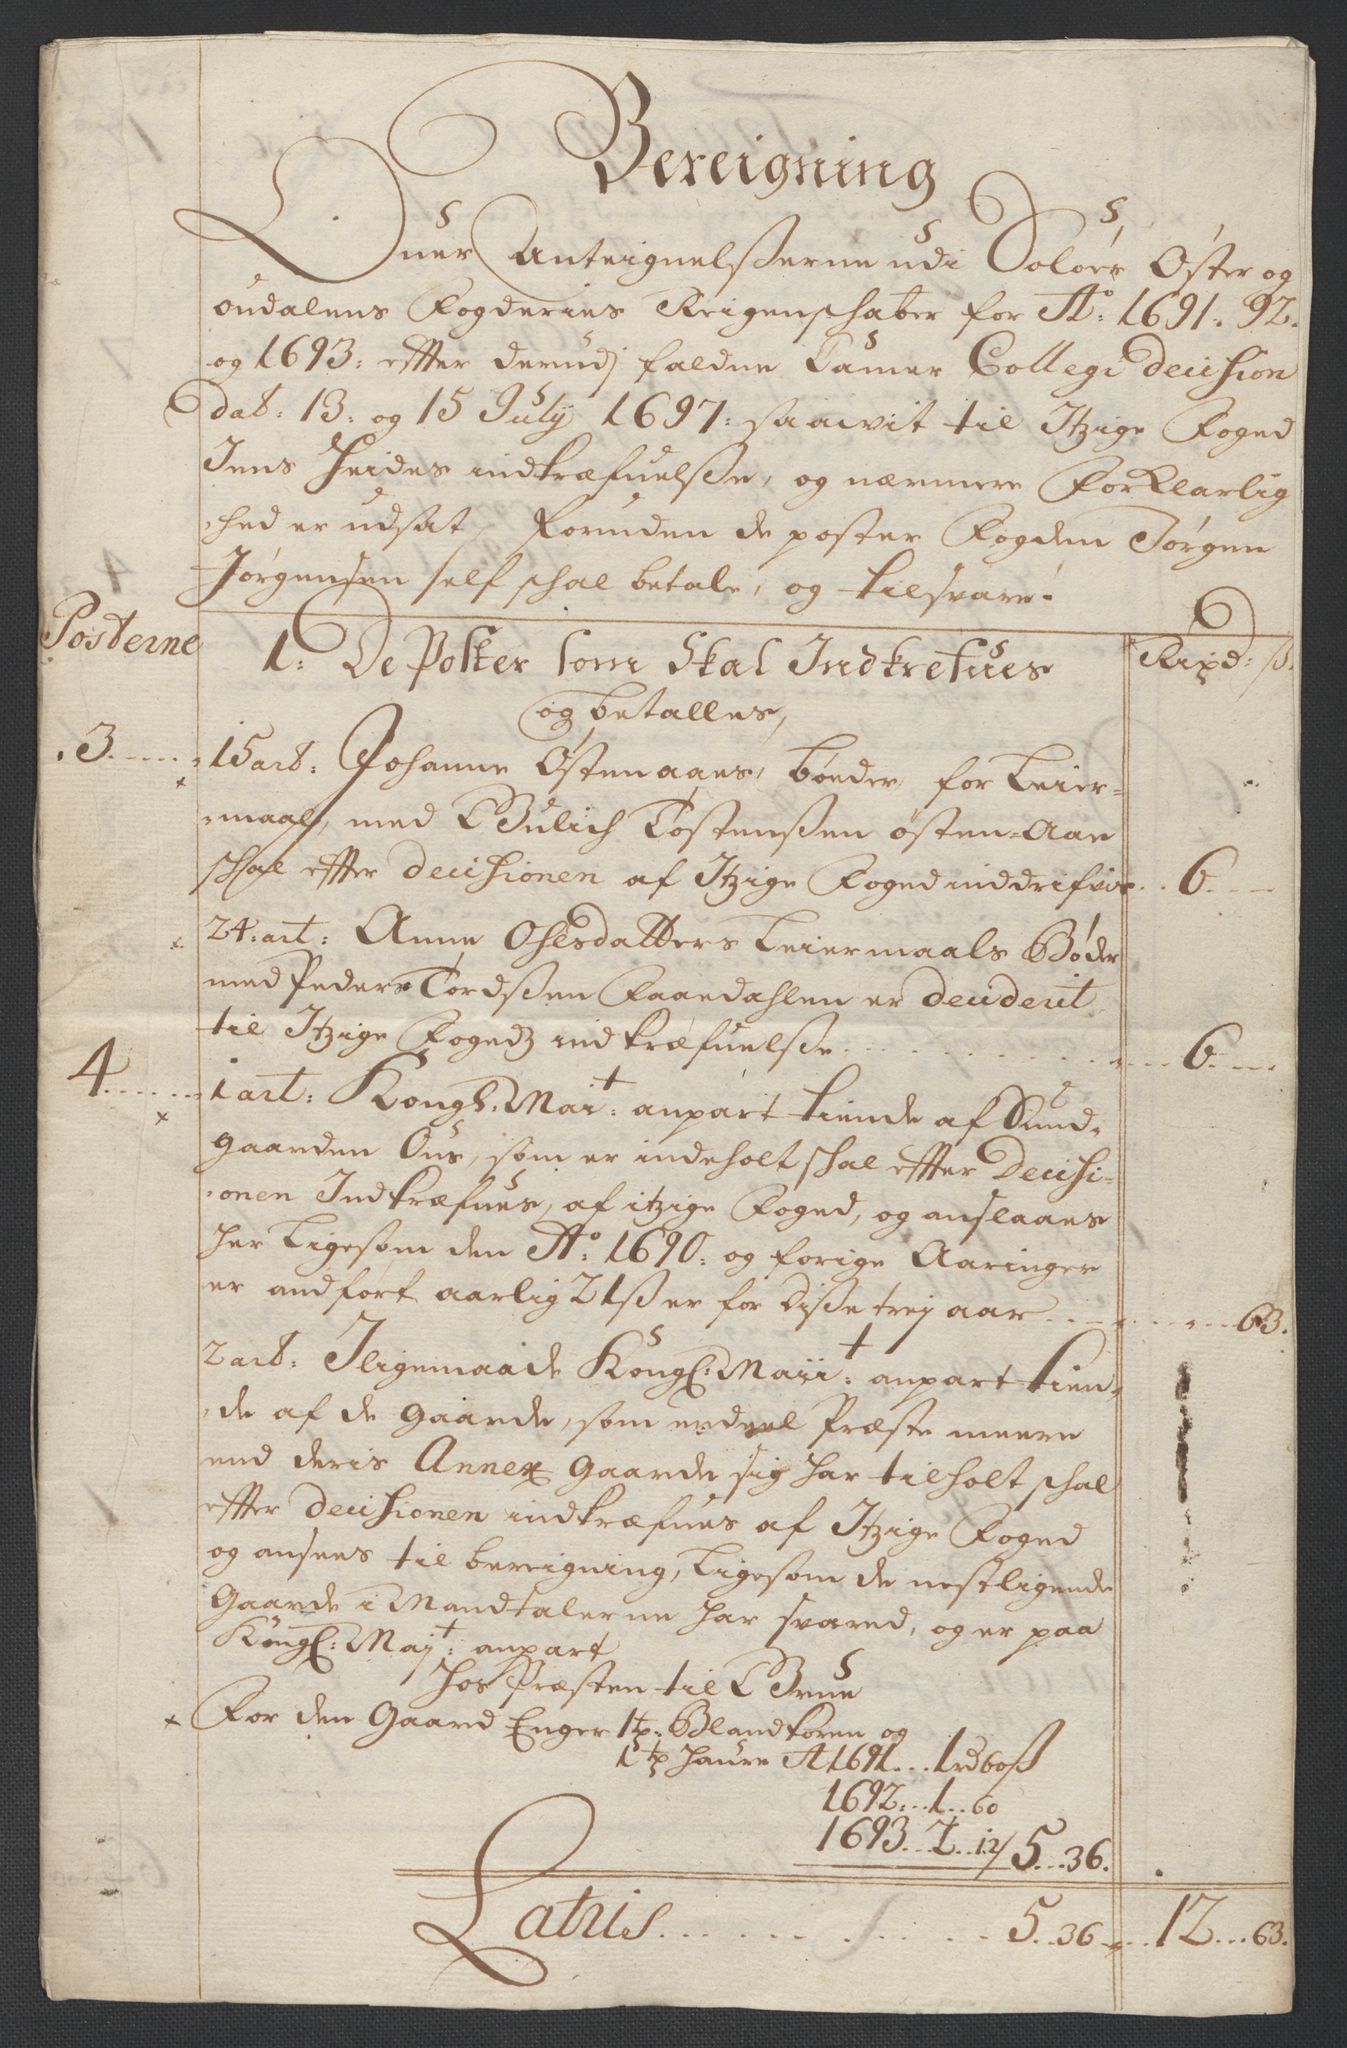 Bereigning
Ofuer Anteignelsserne udi Soløer Øster og
oudalens Fogderies Reigenschaber for Ao: 1691. 92.
og 1693: effter derudj faldne Camer Collegi Decision
dat: 13: og 15 July 1697: saawit til Itzige Foged
Jens Heides indkræfuelsse, og nærmere Forklarlig
hed er udsat, Foruden de poster Fogden Jørgen
Jørgensen self schal betale, og tilsvare.
Posterne 1: De Poster som Skal Indkrefues Rixd: ß.
og betalles,
3. 15 art: Johanne Østenaaes, bøder, for Leier-
maal, med Gulich Tostenssen østen-Aae
schal effter Decisionen af Itzige Foged inddrifvis 6
24: art: Anne Olesdatters Leiermaals Bøder
med Peder Tordssen Faaedahlen er Deciderit
til Itzige Fogedz indkræfuelsse 6
4 1 art: Kongl. Mait: anpart tiende af Sund-
gaarden Ous, som er indeholt schal effter Decisi-
onen Indkræfues, af itzige Foged, og anslaaes
her Ligesom den Ao: 1690: og forige Aaringer
er andført aarlig 21 ß er for disse trej aar 63.
2 art: Iligemaade Kongl: Maiit: anpart tien-
de af de gaarde, som endeel Præste meere
end deris Annex gaarde sig har tilholt schal
effter Decisionen indkræfues af Itzige Foged
og ansees til bereigning, Ligesom de nestligende
Gaarde i Mandtalerne har svared, og er paa
Kongl: Majt: anpart
hos Præsten til Grue
For den Gaard Enger 1 tp: Blandkoren og
1 tp haure A 1691 1 rd 60 ß
1692: 1 60
1693 2 12 / 5 36.
Latus 5 36 12 63.